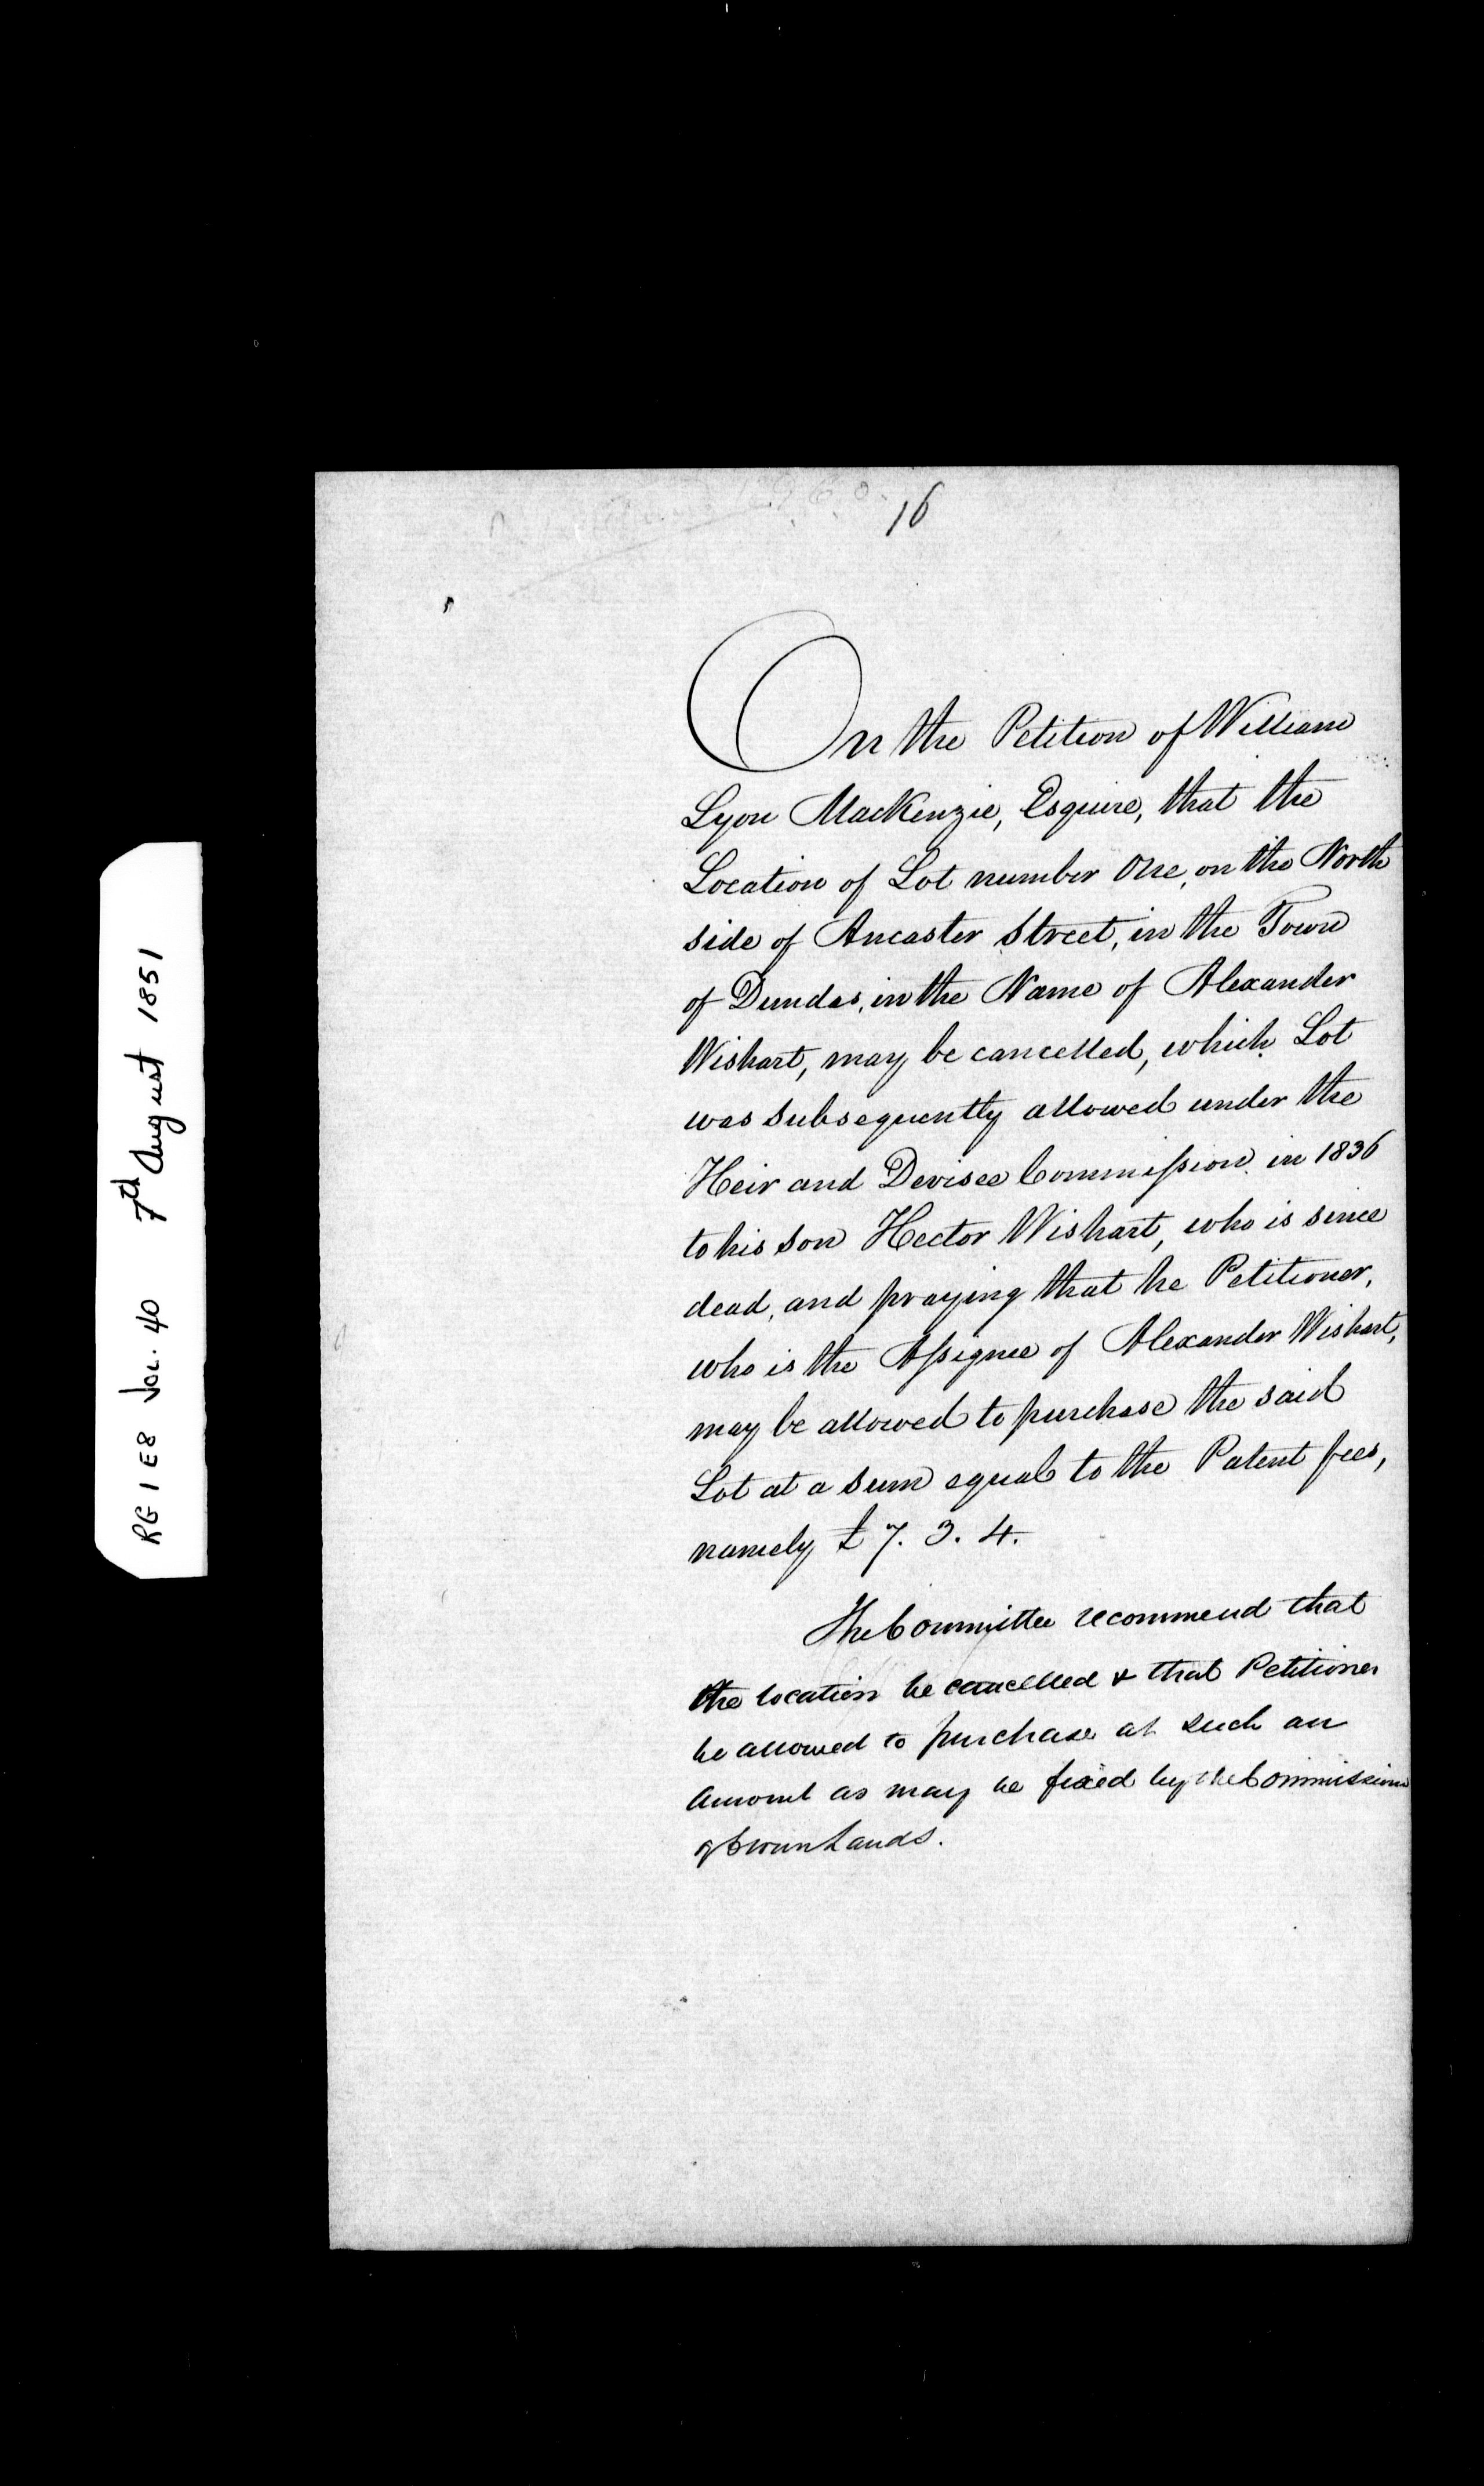 RG 1 E8 Vol. 40 7th August 1851
16
On the Petition of William
Lyon MacKenzie, Esquire, that the
Location of Lot number One, on the North
side of Ancaster Street, in the Town
of Dundas, in the Name of Alexander
Wishart, may be cancelled, which Lot
was subsequently allowed under the
Heir and Devisee Commission in 1836
to his son Hector Wishart, who is since
dead, and praying that he Petitioner,
who is the Assignee of Alexander Wishart,
may be allowed to purchase the said
Lot at a sum equal to the Patent fees,
namely £7. 3. 4.
The Committee recommend that
the location be cancelled & that Petitioner
be allowed to purchase at such an
amount as may be fixed by the Commissioner
of Crown Lands.